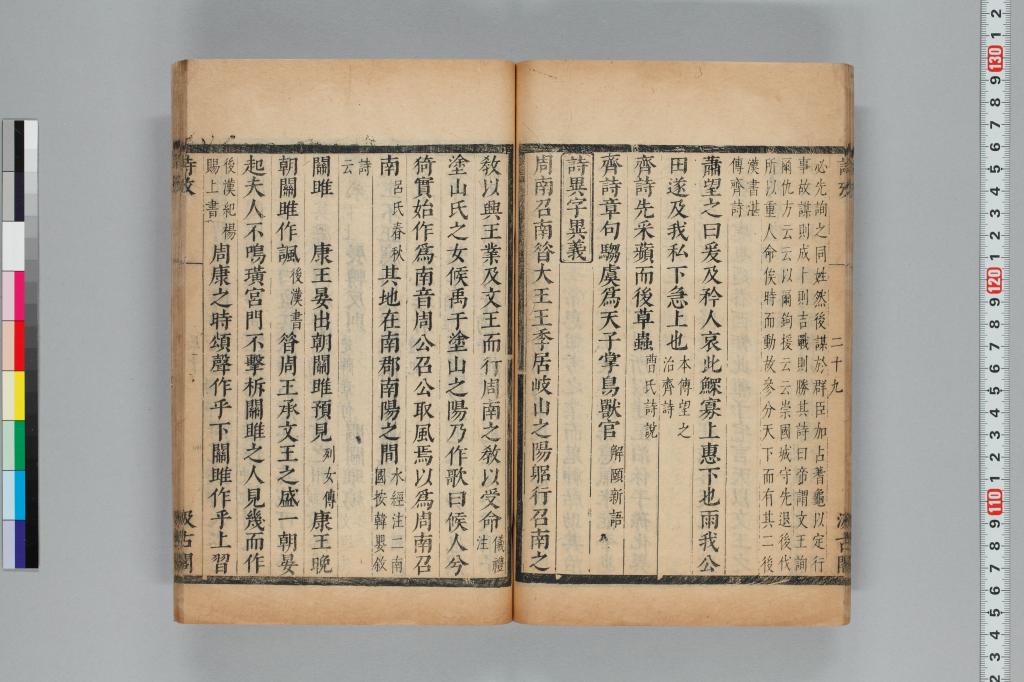 必先詢之同姓然後謀於群臣加占蓍龜以定行
事故謀則成卜則吉戰則勝其詩曰帝謂文王詢
爾仇方云云以爾鉤援云云崇國城守先退後伐
所以重人命俟時而動故參分天下而有其二後
漢書湛
傳齊詩
蕭望之曰爰及矜人哀此鰥寡上惠下也雨我公
田遂及我私下急上也本傳望之治齊詩
齊詩先采蘋而後草蟲曹氏詩說
齊詩章句騶虞爲天子掌鳥獸官解頤新語
詩異字異義
周南召南昝大王王季居岐山之陽躳行召南之
教以興王業及文王而行周南之教以受命儀禮注
塗山氏之女候禹于塗山之陽乃作歌曰候人兮
猗實始作爲南音周公召公取風焉以爲周南召
南呂氏春秋其地在南郡南陽之間水經注二南國按韓嬰敘
詩云
關雎 康王晏出朝關雎預見列女傳康王晚
朝關雎作諷後漢書昝周王承文王之盛一朝晏
起夫人不鳴璜宮門不擊柝關雎之人見幾而作
後漢紀楊賜上書周康之時頌聲作乎下關雎作乎上習
詩攷
二十九
汲古閣